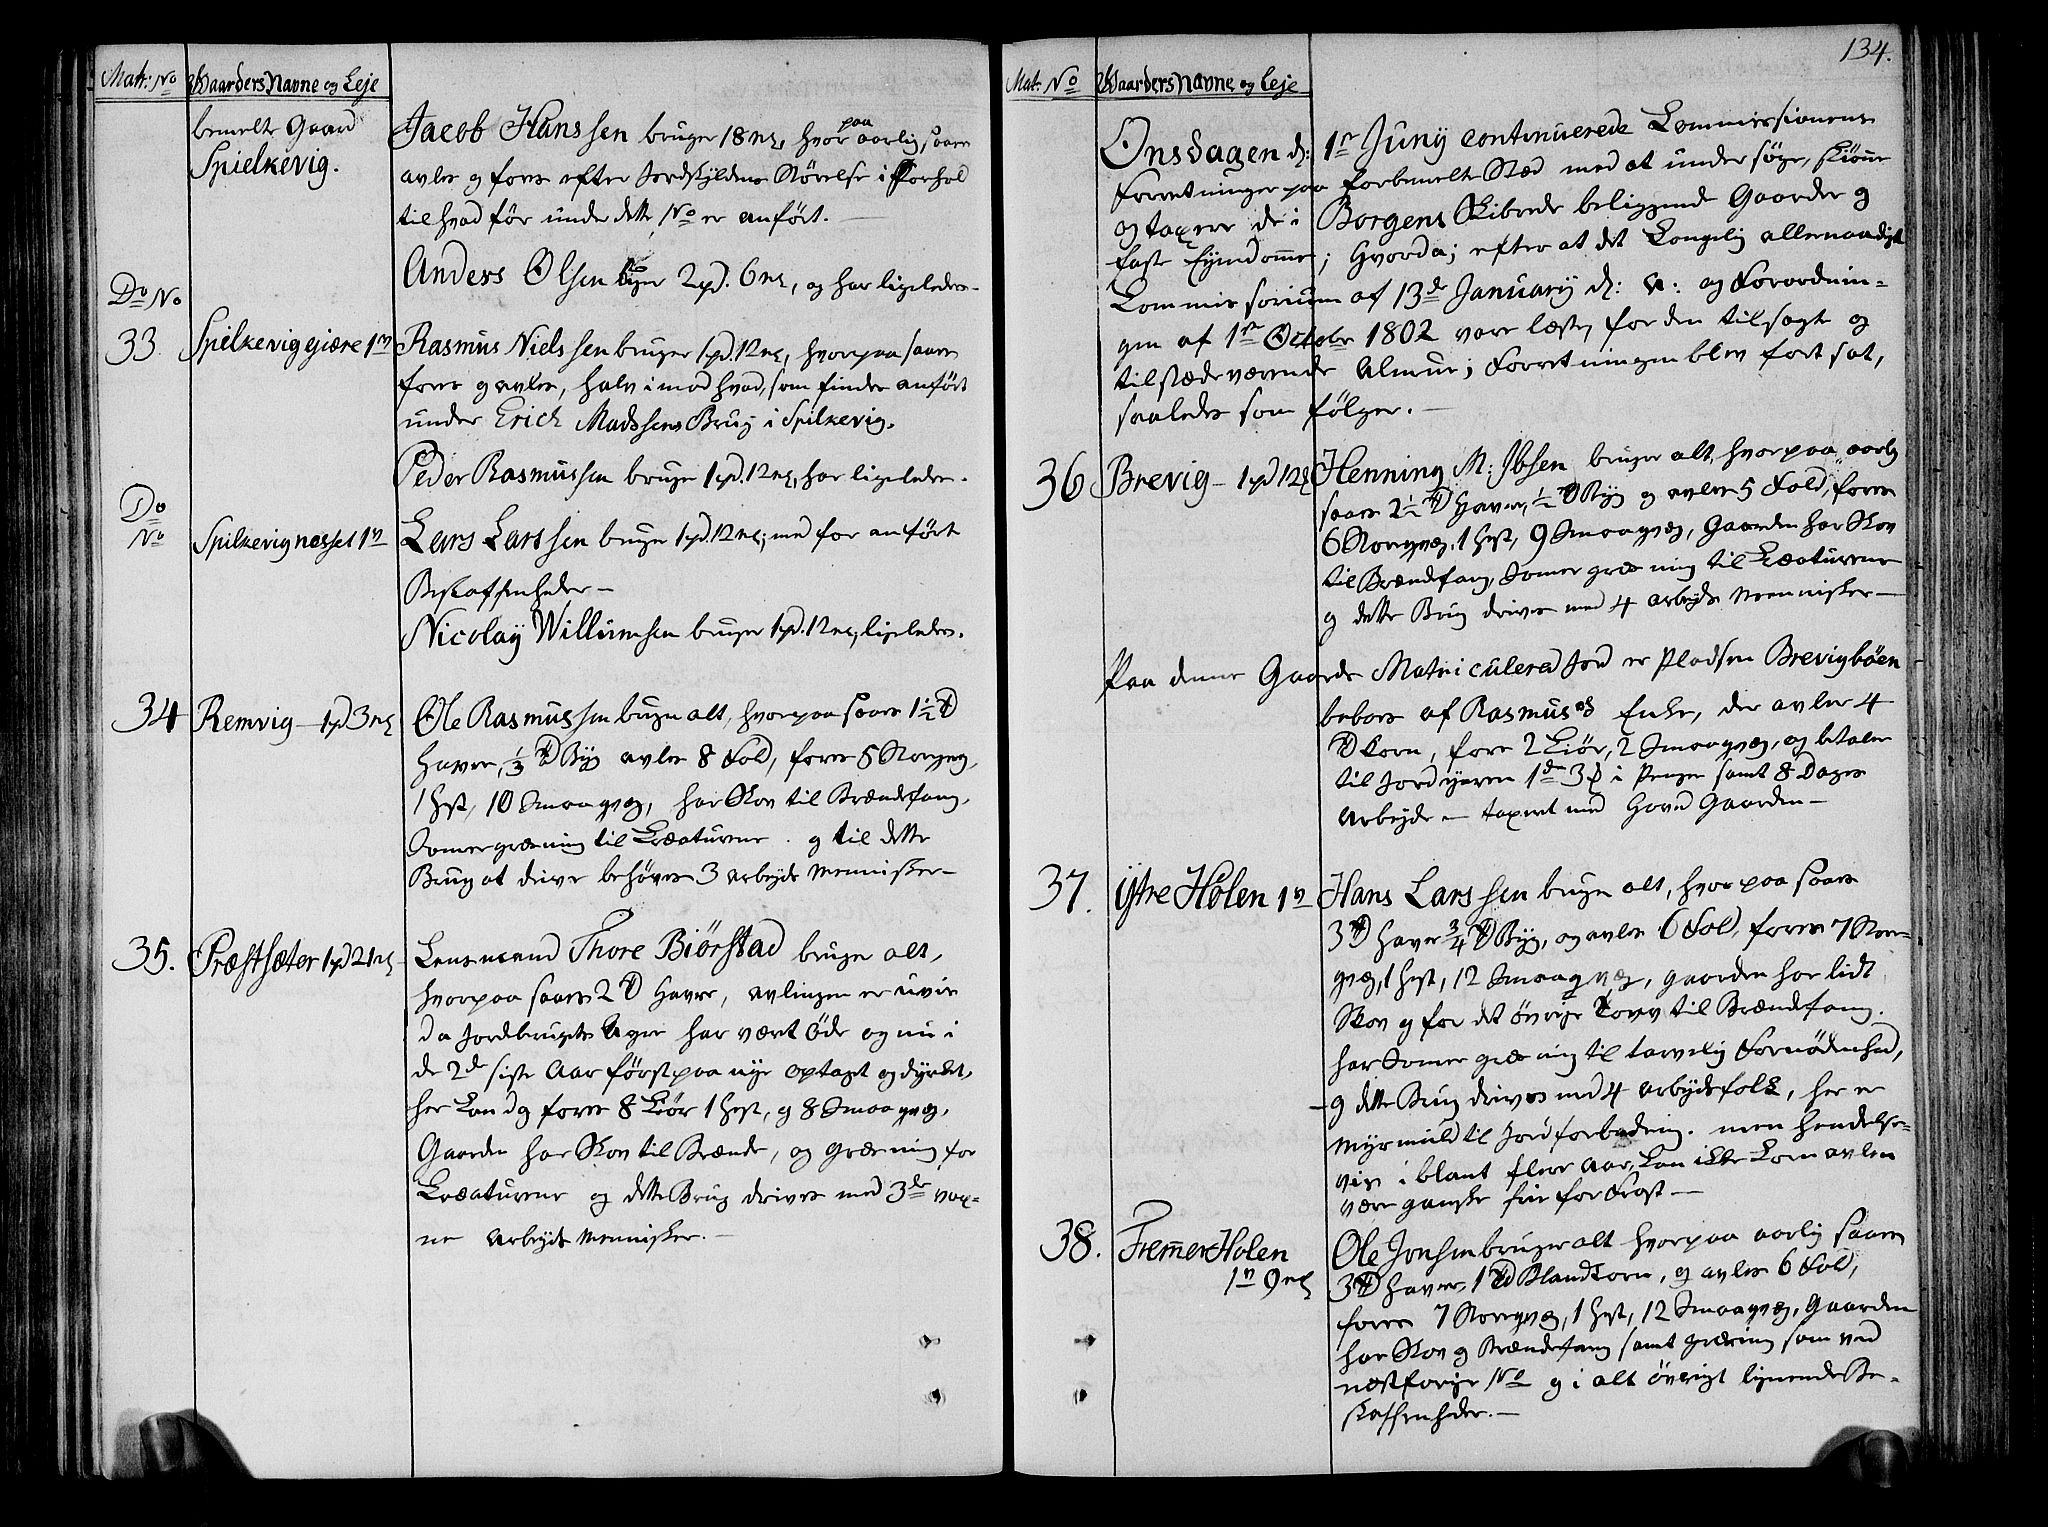 Matr: No Gaarders Navne og Leje
bemelte Gaard
Spielkevig.
Jacob Hanssen bruger 18 mk, hvor paa aarlig saaes
avles og fores efter Jordskyldens Størelse i Forhold
til hvad før under dette No er anført. —
Anders Olsen bruger 2 pd. 6 mk, og har ligeledes —
Do No
33. Spilkevigejære 1 v
Rasmus Nielssen bruger 1 pd. 12 mk, hvorpaa saaes
fores og avles, halv imod hvad, som findes anført
under Erich Madssens Brug i Spilkevig.
Peder Rasmussen bruger 1 pd. 12 mk, har ligeledes.
Do
No Spilkevignesset 1 v
Lars Larssen bruger 1 pd. 12 mk; med for anført
Beskaffenheder —
Nicolay Willumsen bruger 1 pd. 12 mk, ligeledes.
34 Remvig — 1 pd 3 mk
Ole Rasmussen bruger alt, hvorpaa saaes 1½ Td
Havre, ⅓ Td Byg avles 8 Fold, fores 5 Storqvæg,
1 Hest, 10 Smaaqvæg, har Skov til Brændefang,
Somergræsning til Creaturene. og til dette
Brug at drive behøves 3 Arbejds Mennisker —
35. Præstsæter 1 pd 21 mk
Lensmand Thore Biørstad bruger alt,
hvorpaa saaes 2 Td Havre, avlingen er uvis
da Jordbrugets Agre har vært öde og nu i
de 2de siste Aar først paa nye optaget og dyrket,
her kand og fores 8 Kiör 1 Hest, og 8 Smaaqvæg,
Gaarden har Skov til Brænde, og græsning for
Creaturene og dette Brug drives med 3de vox-
ne Arbejds Mennisker. —
134.
Mat: No Gaarders Navne og Leje
Onsdagen d: 1te Juny continuerede Commissionens
Forretninger paa forbemelte Stæd med at undersøge, skiøne
og taxere de i Borgens Skibrede beliggende Gaarder og
faste Ejendomme; Hvorda; efter at det Kongelig allernaadigst
Commissorium af 13de January d: A: og Forordnin-
gen af 1te Octobr 1802 vare læste, for den tilsagte og
tilstædeværende Almue; Forretningen blev fortsat,
saaledes som følger. —
36 Brevig — 1 pd 12 mk
Henning M: Ibsen bruger alt, hvorpaa aarlig
saaes 2½ Td Havre, ½ Td Byg og avles 5 Fold, fores
6 Storqvæg, 1 Hest, 9 Smaaqvæg, Gaarden har Skov
til Brændefang, Somer græsning til Creaturene
og dette Brug drives med 4 Arbejds Mennisker —
Paa denne Gaards Matriculerede Jord er Pladsen Brevigbøen
beboes af Rasmus Enke, der avler 4
Td Korn, fore 2 Kiör, 2 Smaaqvæg, og betaler
til Jordejeren 1 rd 3 ß i Penge samt 8 Dages
Arbejde — taxeret med Hoved Gaarden —
37. Ÿtre Holen 1 v
Hans Larssen bruger alt, hvorpaa saaes
3 Td Havre ¾ Td Byg, og avles 6 Fold, fores 7 Stor-
qvæg, 1 Hest, 12 Smaaqvæg, Gaarden har lidt
Skov og for det övrige Torv til Brændefang,
har Somer græsning til tarvelig Fornødenhed,
og dette Brug drives med 4 Arbejdsfolk, her er
Myrmuld til Jordforbedring. men hendelse-
vis i blant flere Aar, kan ikke Korn avlen
være ganske frie for Frost —
38. Fremer Holen
1 v 9 mk
Ole Jonsen bruger alt hvorpaa aarlig saaes
3 Td Havre, 1 Td Blandkorn, og avles 6 Fold,
fores 7 Storqvæg, 1 Hest, 12 Smaaqvæg, Gaarden
har Skov og Brændefang samt græsning som ved
næstforige No og i alt övrigt lignende Be-
skaffenheder. —